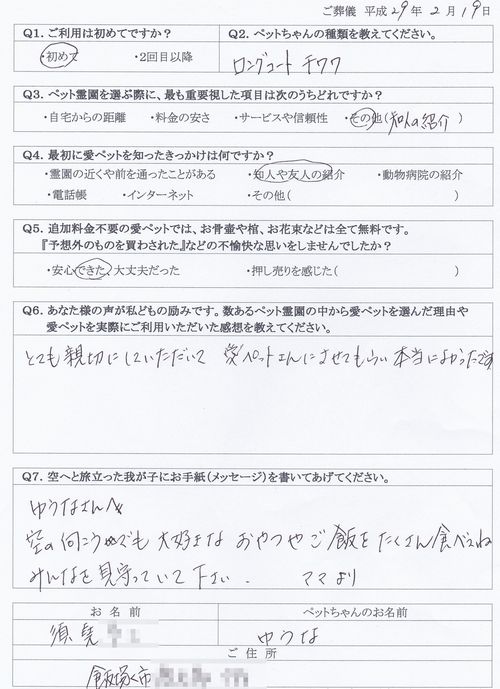 ご葬儀 平成29年2月19日
Q1. ご利用は初めてですか?
Q2. ペットちゃんの種類を教えてください。
・初めて ・2回目以降
ロングコート チワワ
Q3. ペット霊園を選ぶ際に、最も重要視した項目は次のうちどれですか?
・自宅からの距離 ・料金の安さ ・サービスや信頼性 ・その他(知人の紹介)
Q4. 最初に愛ペットを知ったきっかけは何ですか?
・霊園の近くや前を通ったことがある ・知人や友人の紹介 ・動物病院の紹介
・電話帳 ・インターネット ・その他( )
Q5. 追加料金不要の愛ペットでは、お骨壷や棺、お花束などは全て無料です。
『予想外のものを買わされた』などの不愉快な思いをしませんでしたか?
・安心できた、大丈夫だった ・押し売りを感じた( )
Q6. あなた様の声が私どもの励みです。数あるペット霊園の中から愛ペットを選んだ理由や
愛ペットを実際にご利用いただいた感想を教えてください。
とても親切にしていただいて 愛ペットさんにさせてもらい本当によかったです
Q7. 空へと旅立った我が子にお手紙(メッセージ)を書いてあげてください。
ゆうなさんへ
空の向こうでも大好きな おやつやご飯をたくさん食べてね
みんなを見守っていて下さい. ママより
お名前
ペットちゃんのお名前
須堯
ゆうな
ご住所
飯塚市